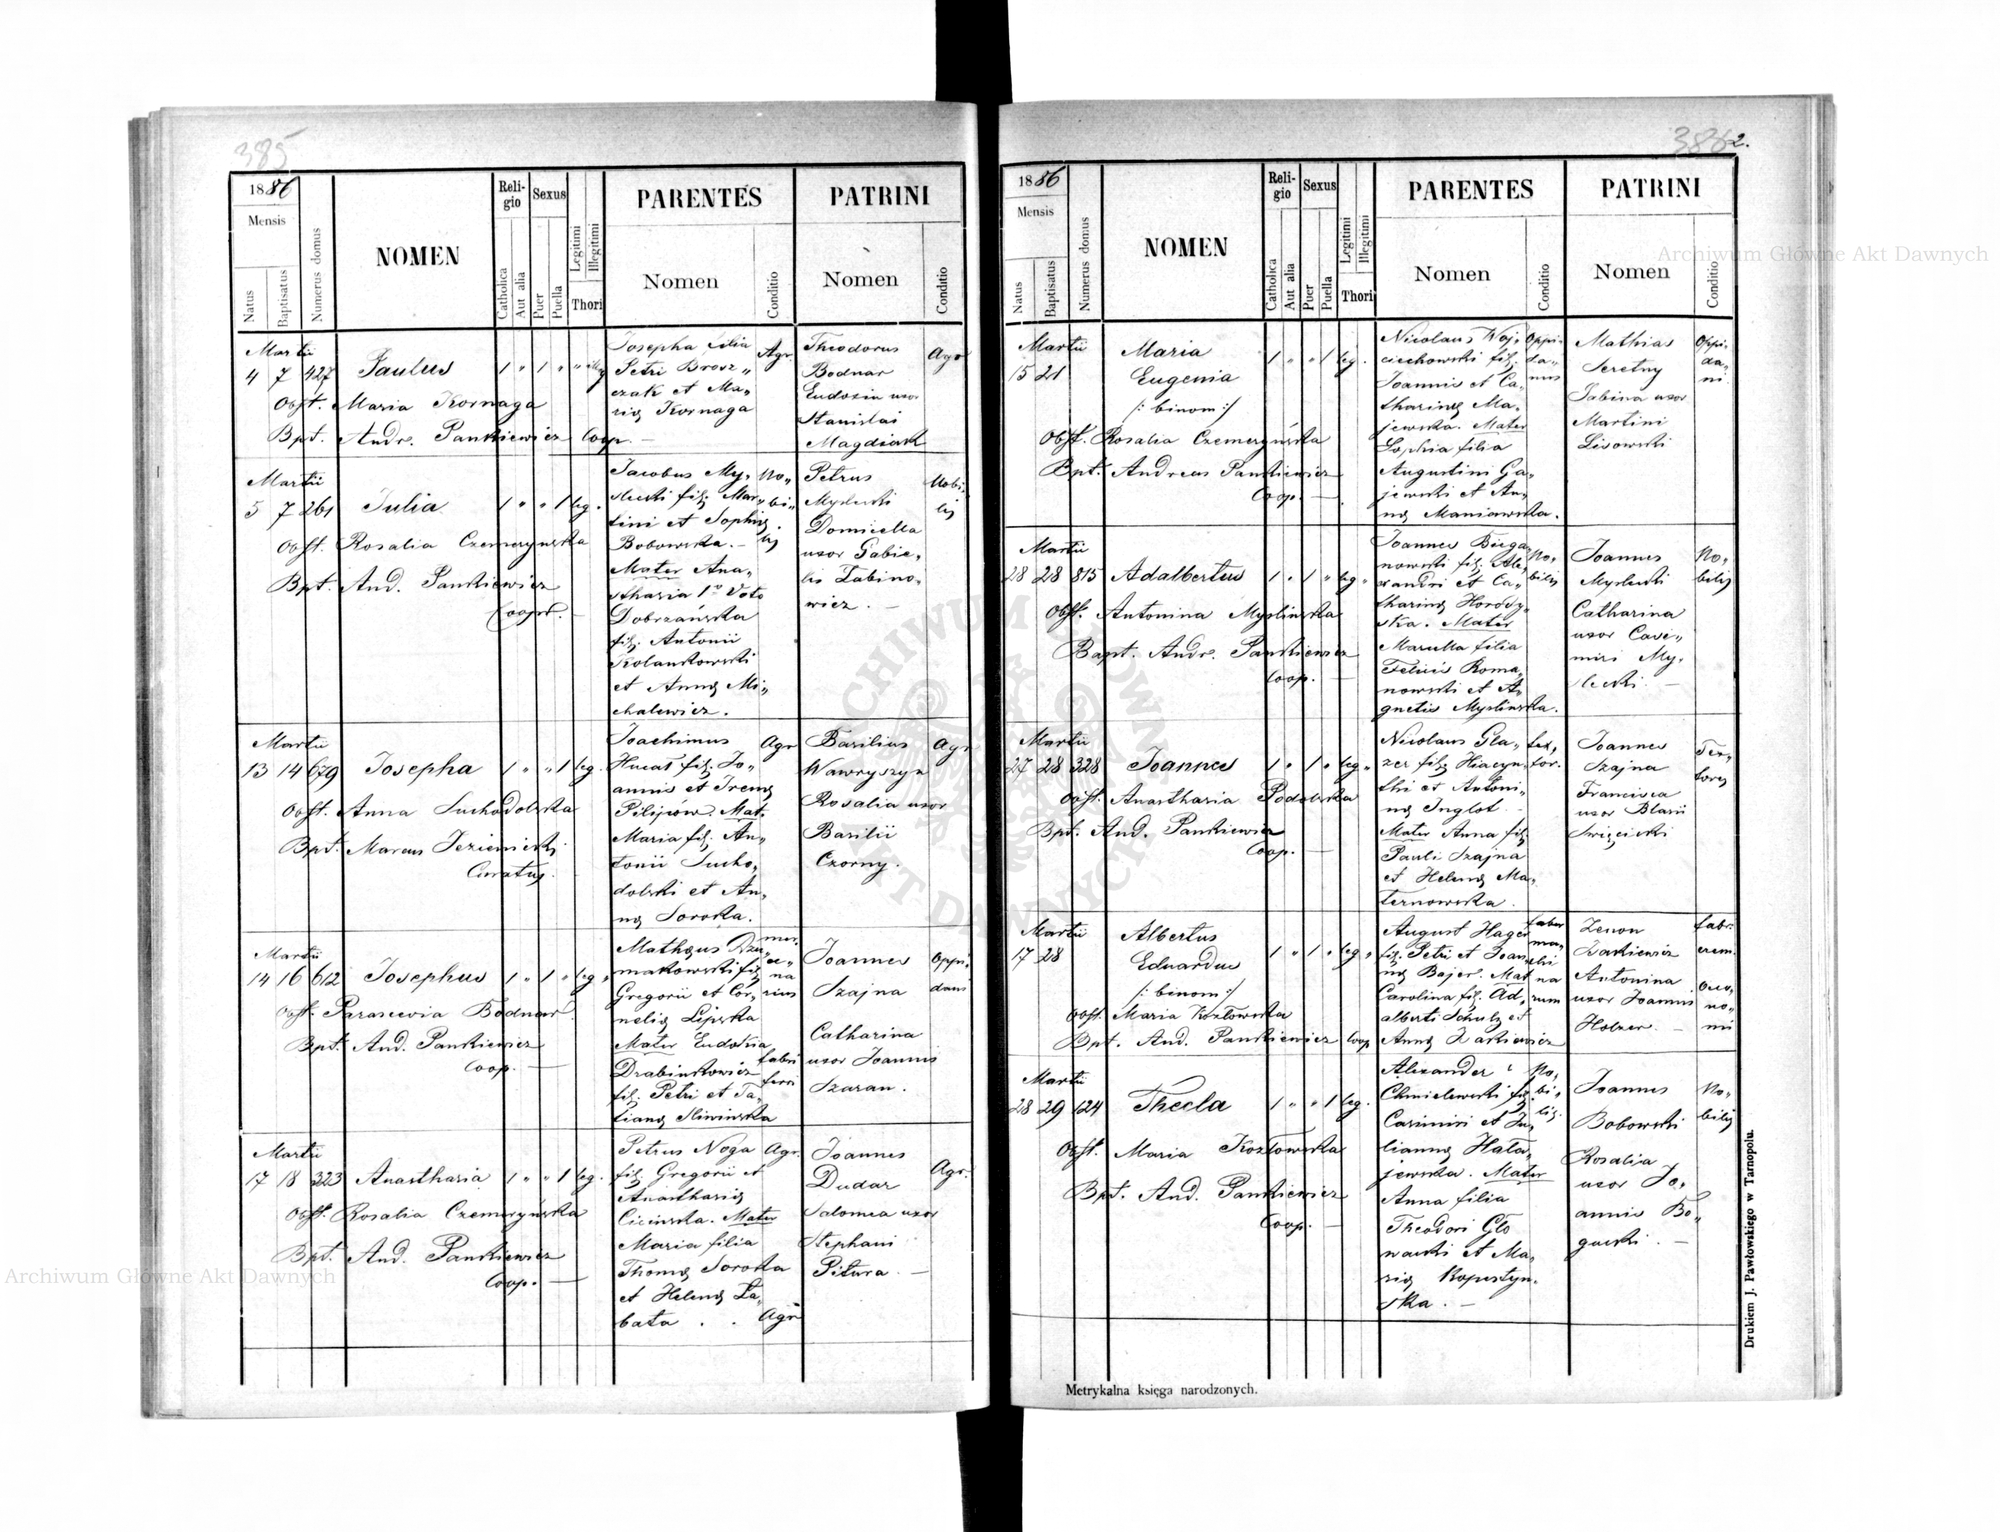 385
1886
Mensis
Natus
Baptisatus
Numerus domus
NOMEN
Reli-
gio
Catholica
Aut alia
Sexus
Puer
Puella
Legitimi
Illegitimi
Thori
PARENTES
Nomen
Conditio
PATRINI
Nomen
Conditio
Martii
4 7 427 Paulus 1 " 1 " "
Obst. Maria Kornaga
Bpt. Andr. Pankiewicz Coop.
Josepha filia
Petri Brosz„
czak et Ma„
riæ Kornaga
Agr.
Theodorus
Bodnar
Eudoxia uxor
Stanislai
Magdiark
Agr
Martii
5 7 261 Julia 1 " " 1 leg.
Obst. Rosalia Czemeryńska
Bpt. And. Pankiewicz
Coop.
Jacobus My„
slecki fil. Mar„
tini et Sophiæ
Bobowska.
Mater Ana„
sthasia 1o Voto
Dobrzańska
fil. Antonii
Kolankowski
et Annæ Mi„
chalewicz.
No„
bi„
lis
Petrus
Myslecki
Domicella
uxor Gabrie„
lis Zabino„
wicz.
Nobi„
lis
Martii
13 14 679 Josepha 1 " " 1 leg.
Obst. Anna Suchodolska
Bpt. Marcus Jezienicki
Curatus.
Joachimus
Hucał fil. Jo„
annis et Irenæ
Pilipców. Mat.
Maria fil. An„
tonii Sucho„
dolski et An„
næ Soroka.
Agr
Basilius
Wawryszyn
Rosalia uxor
Basilii
Czorny.
Agr
Martii
14 16 612 Josephus 1 " 1 " leg
Obst. Parascevia Bodnar
Bpt. And. Pankiewicz
Coop.
Gregorii et Cor„
neliæ Lipska
Mater Eudoxia
Drabinkowicz
fil. Petri et Ta„
tianæ Sliwińska
fabri
ferri
Joannes
Szajna
Catharina
uxor Joannis
Szaran.
Oppi„
dani
Martii
17 18 323 Anasthasia 1 " " 1 leg.
Obst. Rosalia Czemeryńska
Bpt. And. Pankiewicz
Coop.
Petrus Noga
fil. Gregorii et
Anasthasiæ
Cicińska. Mater
Maria filia
Thomæ Soroka
et Helenæ Ła„
bata
Agr.
Agr
Joannes
Dudar
Salomea uxor
Stephani
Pitura
Agr.
386 2.
1886
Mensis
Natus
Baptisatus
Numerus domus
NOMEN
Reli-
gio
Catholica
Aut alia
Sexus
Puer
Puella
Legitimi
Illegitimi
Thori
PARENTES
Nomen
Conditio
PATRINI
Nomen
Conditio
Martii
15 21 Maria
Eugenia
/: binom :/
1 " " 1 leg.
Obst. Rosalia Czemeryńska
Bpt. Andreas Pankiewicz
Coop.
Nicolaus Woj„
ciechowski fil.
Joannis et Ca„
tharinæ Ma„
jewska. Mater
Sophia filia
Augustini Ga„
jewski et An„
næ Maniawska.
Oppi„
da„
nus
Mathias
Seretny
Sabina uxor
Martini
Lisowski
Oppi„
da„
ni
Martii
28 28 815 Adalbertus 1 " 1 " leg
Obst. Antonina Myslinska
Bapt. Andr. Pankiewicz
Coop.
Joannes Biega„
nowski fil. Ale„
xandri et Ca„
tharinæ Horody„
ska. Mater
Marulla filia
Felicis Roma„
nowski et A„
gnetis Myslinska.
No„
bilis
Joannes
Myslecki
Catharina
uxor Casi„
miri My„
slecki.
No„
bilis
Martii
27 28 328 Joannes 1 " 1 " leg
Obst. Anasthasia Podolska
Bpt. And. Pankiewicz
Coop.
Nicolaus Gla„
zer fil. Hiacyn„
thi et Antoni„
næ Inglot.
Mater Anna fil.
Pauli Szajna
et Helenæ Ma„
ternowska.
tex„
tor.
Joannes
Szajna
Francisca
uxor Blasii
Święcicki
Tex„
tores
Martii
17 28 Albertus
Eduardus
/: binom :/
1 " 1 " leg
Obst. Maria Kozłowska
Bpt. And. Pankiewicz Coop
August Hager
fil. Petri et Joan„
næ Bajer. Mat
Carolina fil. Ad„
alberti Schulz et
Annæ Zarkiewicz
faber
ma„
chi
na
rum
Zenon
Antonina
uxor Joannis
Holzer.
Martii
28 29 124 Thecla 1 " " 1 leg.
Obst. Maria Kozłowska
Bpt. And. Pankiewicz
Coop.
Alexander
Chmielewski fil.
Casimiri et Ju„
liannæ Hała„
jewska. Mater
Anna filia
Theodori Gło
wacki et Ma„
riæ Kopystyn„
ska.
No„
bi„
lis.
Joannes
Bobowski
Rosalia
uxor Jo„
annis Bo„
gucki.
No„
bilis
Metrykalna księga narodzonych.
Drukiem J. Pawłowskiego w Tarnopolu.
Archiwum Główne Akt Dawnych
Archiwum Główne Akt Dawnych
ARCHIWUM GŁÓWNE AKT DAWNYCH